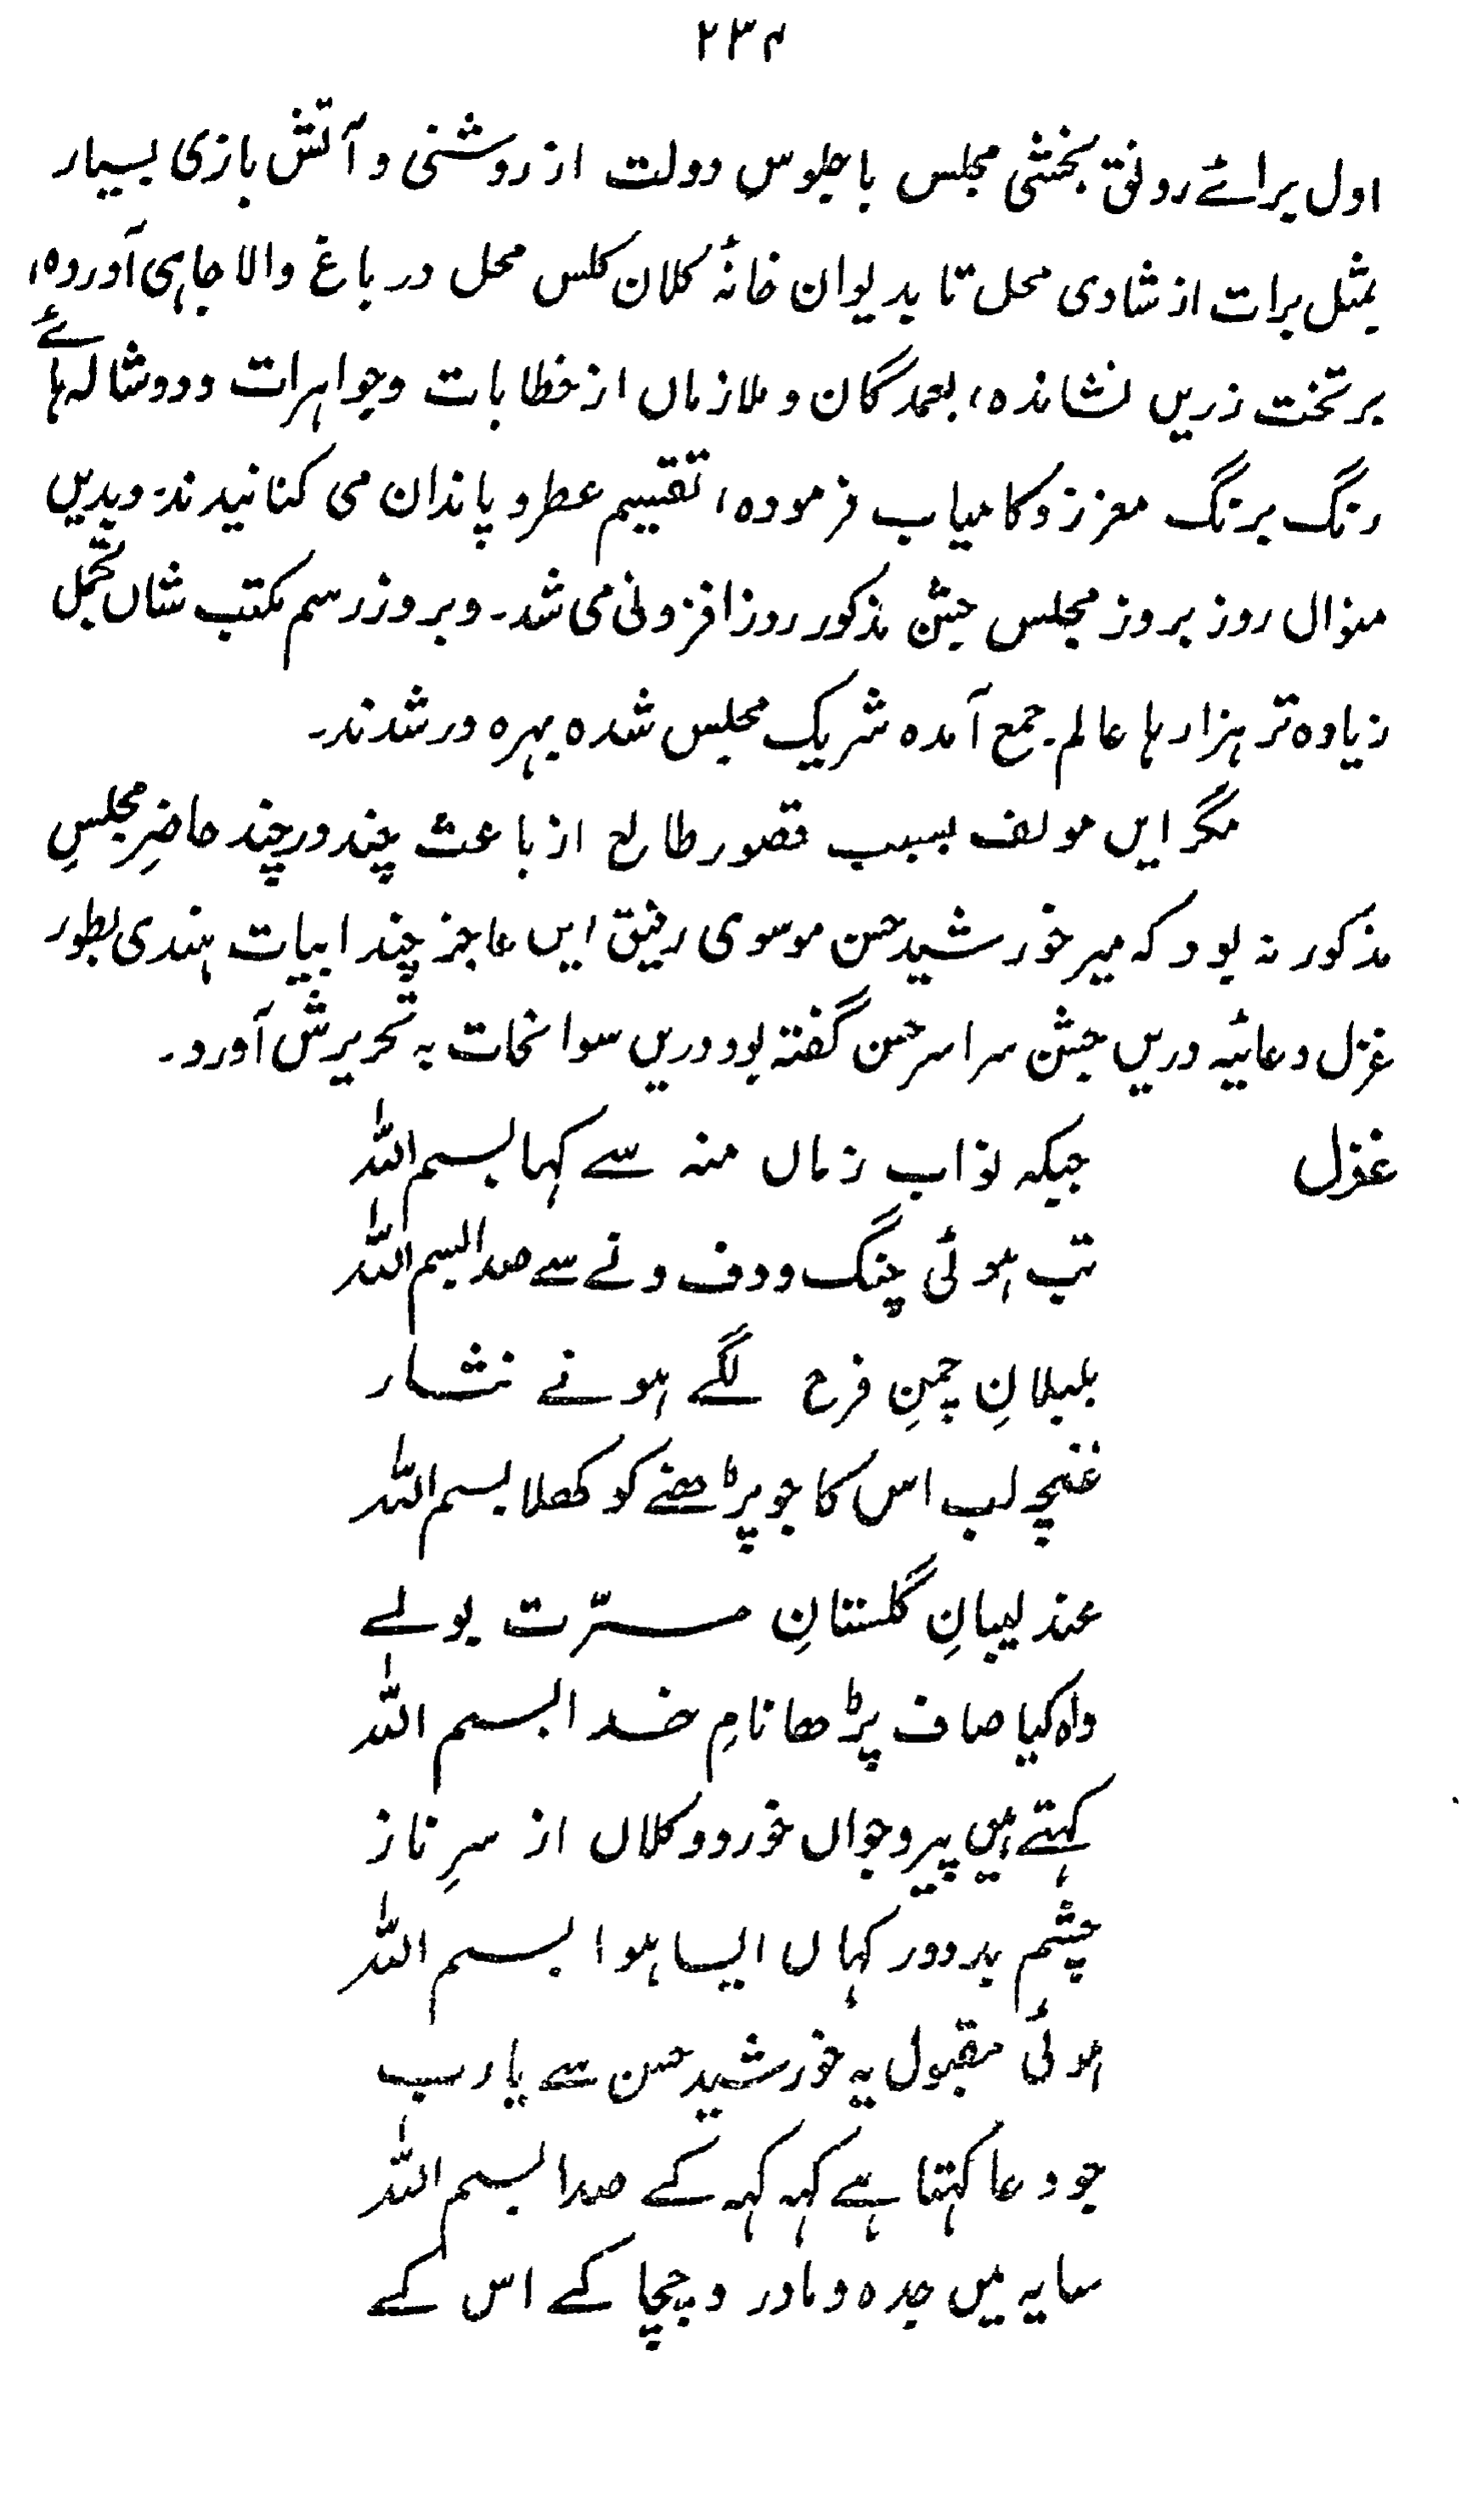 ۲۳۴
اول برائے رونق بخشی مجلس با جلوس دولت از روشنی و آتش بازی بسیار
بمثل برات از شادی محل تا بدیوان خانۂ کلان کلس محل در باغ والا جاہی آوردہ،
بر تخت زریں نشاندہ، بعمدگان و ملازماں از خطابات و جواہرات و دوشالہ ہائے
رنگ برنگ معزز و کامیاب فرمودہ، تقسیم عطر و پاندان می کنانیدند۔ و بدیں
منوال روز بروز مجلس جشن مذکور روز افزونی می شد۔ و بروز رسم مکتب شاں تجمل
زیادہ تر ہزارہا عالم۔ جمع آمدہ شریک مجلس شدہ بہرہ ور شدند۔
مگر ایں مولف بسبب قصور طالع از باعث چند در چند حاضرِ مجلسِ
مذکور نہ بود کہ میر خورشید حسن موسوی رفیق ایں عاجز چند ابیات ہندی بطور
غزل دعائیہ دریں جشن سراسر حسن گفتہ بود دریں سوانحات بہ تحریرش آورد۔
غزل جبکہ نواب زماں منہ سے کہا بسم اللہ
تب ہوئی چنگ و دف و نے سے صدا بسم اللہ
بلبلانِ چمنِ فرح لگے ہونے نثار
غنچہ لب اس کا جو پڑھنے کو کھلا بسم اللہ
عندلیبانِ گلستانِ مسرّت بولے
واہ کیا صاف پڑھا نامِ خدا بسم اللہ
کہتے ہیں پیر و جواں خورد و کلاں از سرِ ناز
چشم بد دور کہاں ایسا ہوا بسم اللہ
ہوئی مقبول یہ خورشید حسن سے یارب
جو دعا کہتا ہے کہہ کہہ کے صدا بسم اللہ
سایہ میں جدہ و مادر و چچا کے اس کے